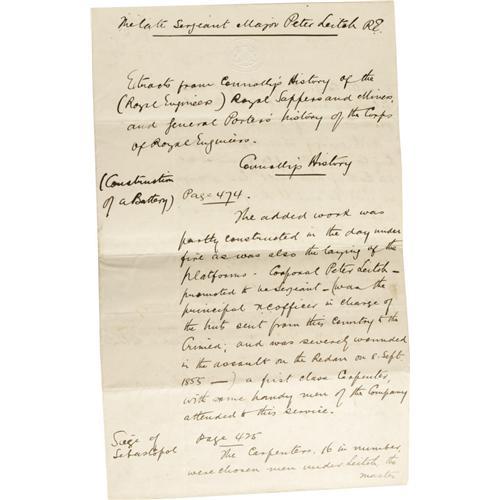 The late Sergeant Major Peter Leitch R.E.
Extracts from Connolly's History of the
(Royal Engineers) Royal Sappers and Miners,
and General Porter's history of the Corps
of Royal Engineers.
Connolly's History
(Construction
of a Battery) Page 474.
The added work was
partly constructed in the day under
fire as was also the laying of the
platforms. Corporal Peter Leitch -
promoted to be Sergeant - (was the
principal n.c officer in charge of
the huts sent from this Country to the
Crimea; and was severely wounded
in the assault on the Redan on 8. Sept
1855 -) a first class Carpenter,
with some handy men of the Company
attended to this service.
Siege of
Sebastopol
Page 475
The Carpenters, 16 in number,
were chosen men under Leitch, the
master